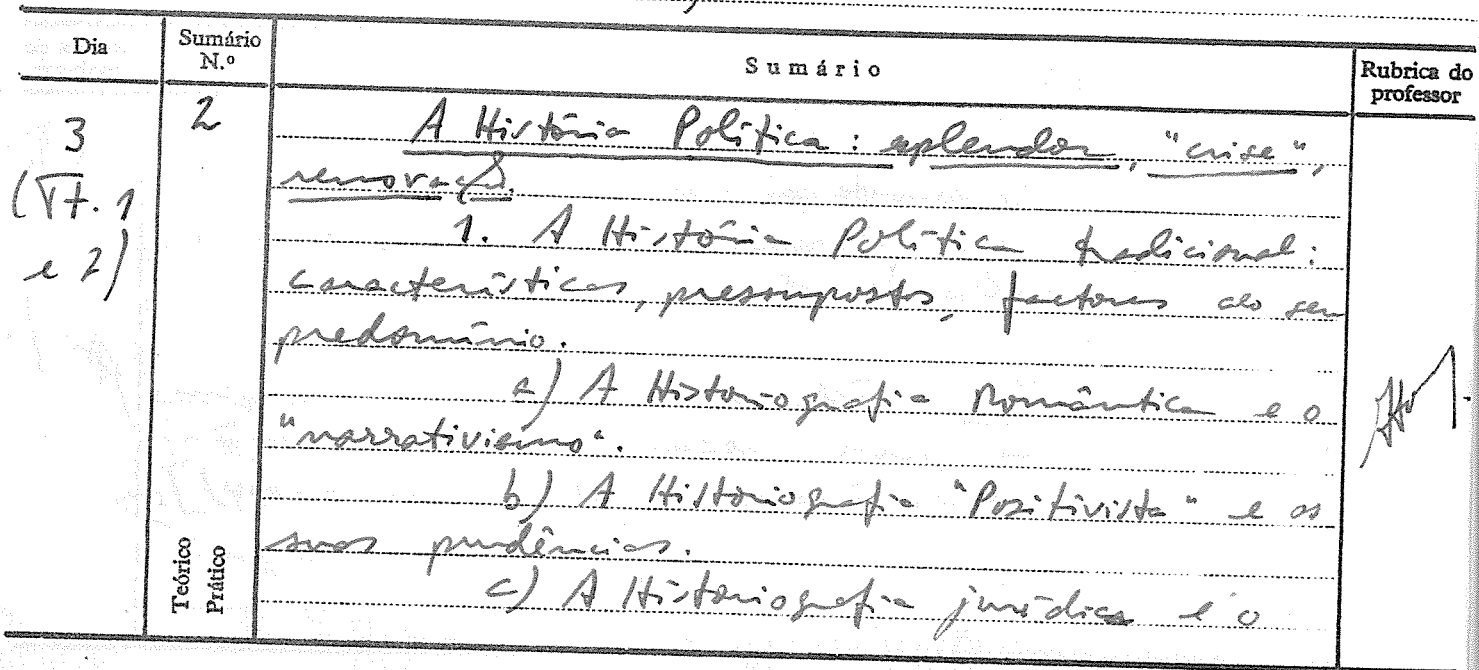 Dia
Sumário N.º
Sumário
Rubrica do professor
3
2
A História Política: esplendor, "crise",
renovação.
e 2)
1. A História Política tradicional:
características, pressupostos, factores do seu
predomínio.
a) A Historiografia Romântica e o
"narrativismo".
b) A Historiografia "Positivista" e as
suas prudências.
c) A Historiografia jurídica e o
Teórico
Prático